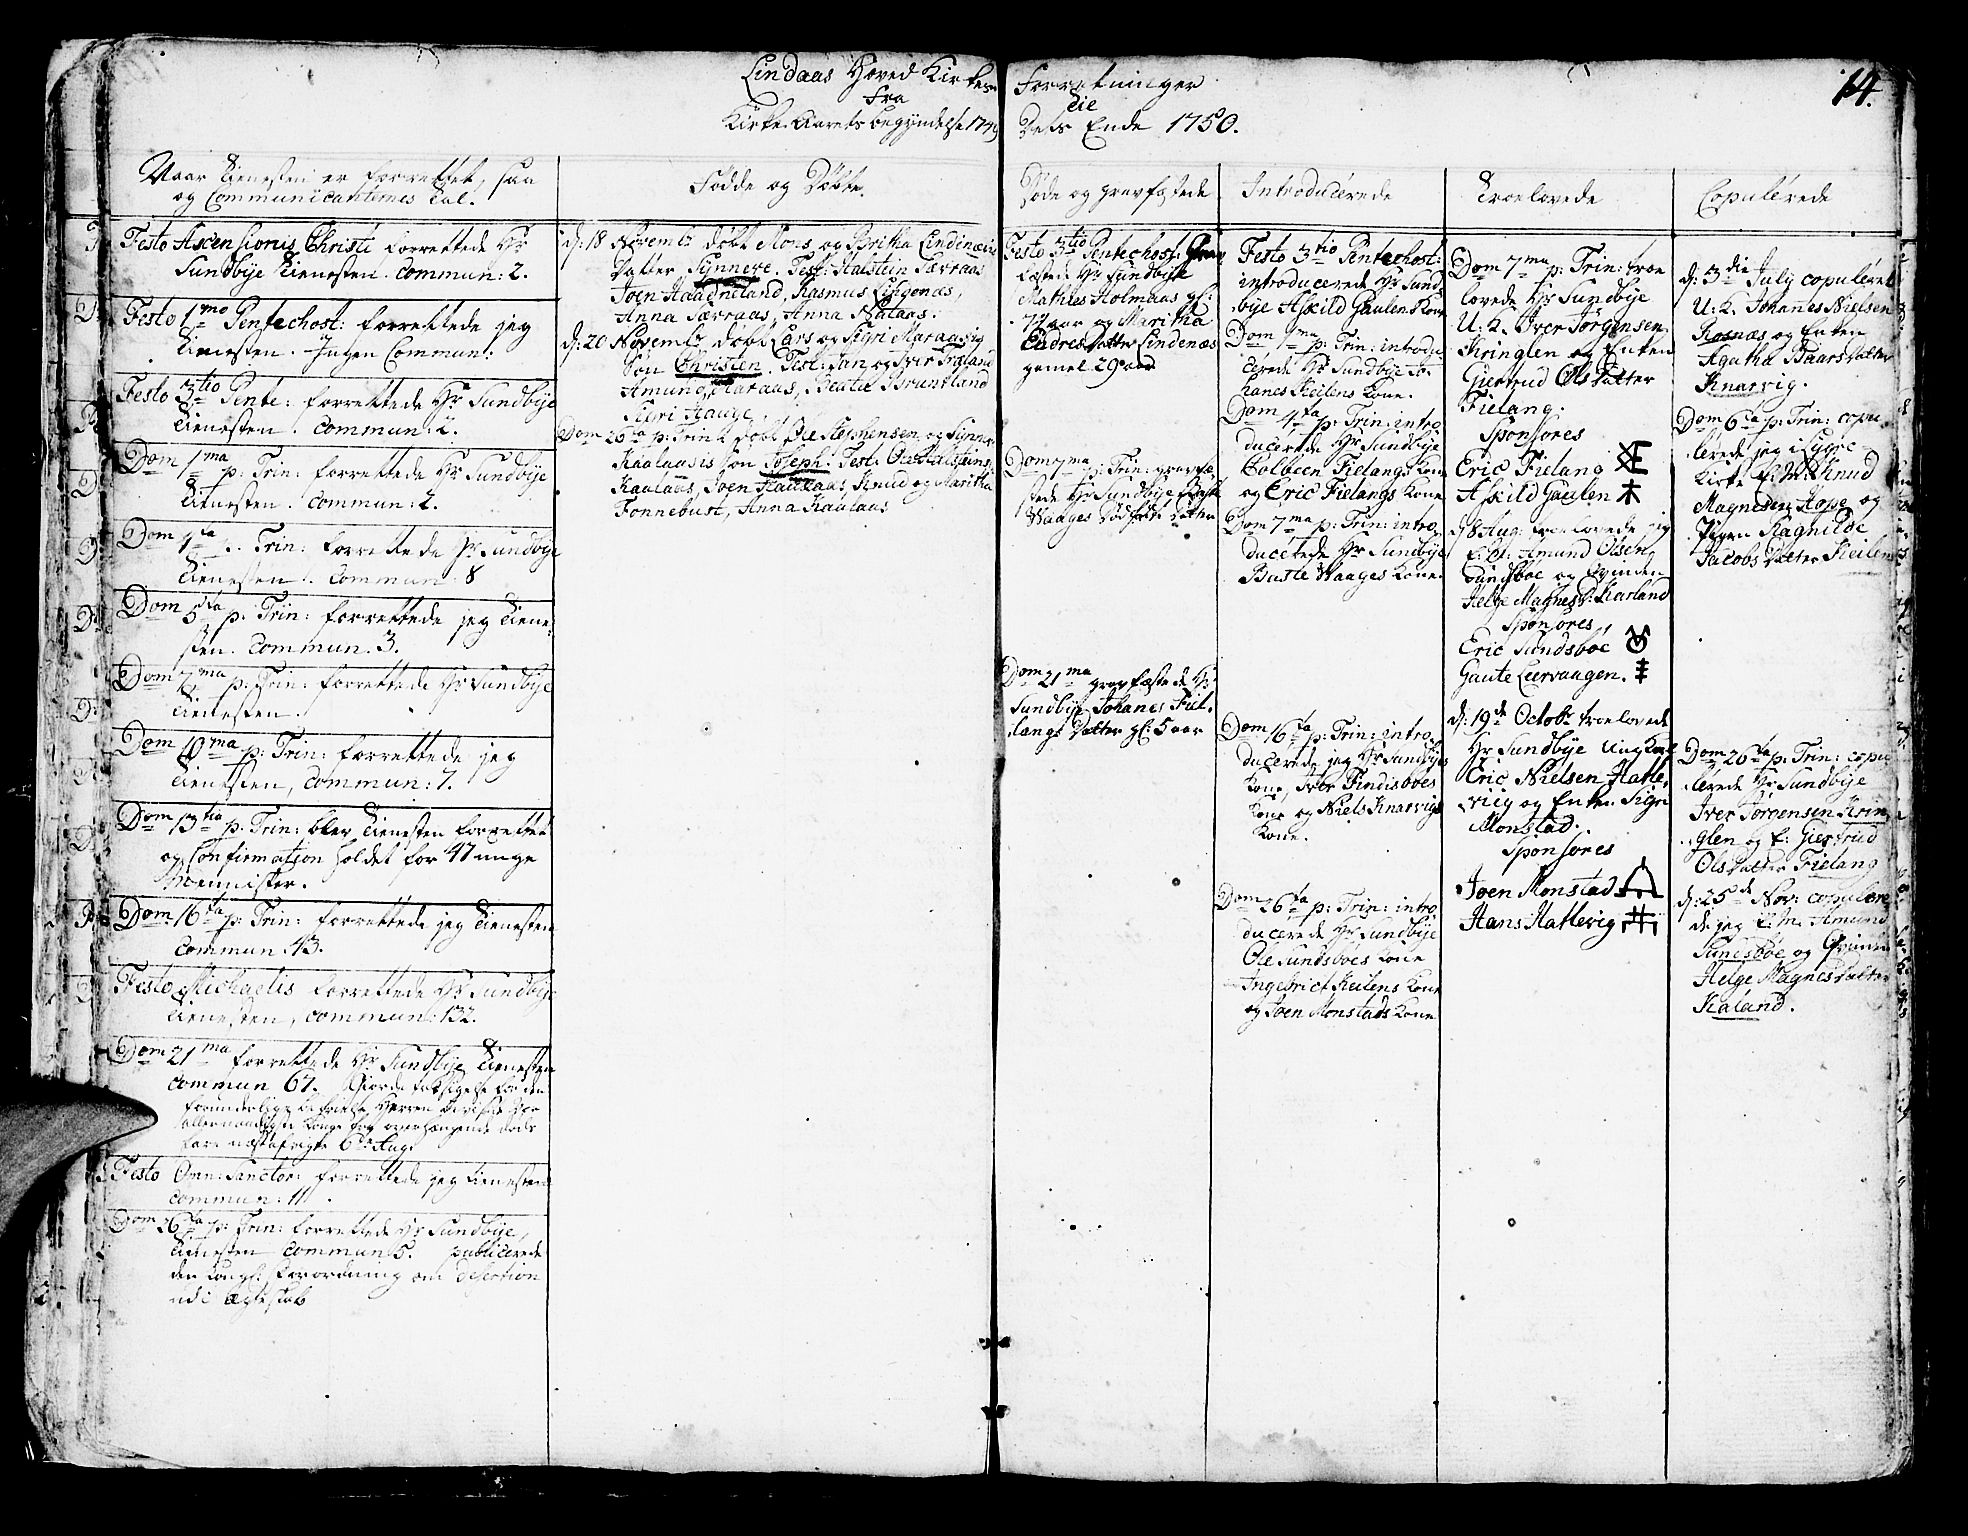 Lindaas Hoved Kirkes Forretninger
fra til
Kirke Aarets begyndelse 1749 Dets Ende 1750.
14.
Naar Tienesten er forrettet, saa
og Communicanternes Tal.
Festo Ascensionis Christi forrettede Hr
Sundbye Tienesten. Commun: 2.
Festo 1mo Pentechost: forrettede jeg
Tienesten. Ingen Commun:
Festo 3tio Pente: forrettede Hr Sundbye
Tienesten. Commun: 2.
Dom 1ma p: Trin: forrettede Hr Sundbye
Tienesten. Commun: 2.
Dom 4ta p. Trin: forrettede Hr Sundbye
Tienesten. Commun: 8
Dom 5ta p. Trin: forrettede jeg Tiene-
sten. Commun. 3.
Dom 7ma p: Trin: forrettede Hr Sundbye
Tienesten.
Dom 10ma p: Trin: forrettede jeg
Tienesten, Commun: 7.
Dom 13tia p. Trin: blev Tienesten forrettet
og Confirmation holdet for 47 unge
Mennisker.
Dom 16ta p: Trin: forrettede jeg Tienesten
Commun: 43.
Festo Michaelis forrettede Hr Sundbye
Tienesten, Commun: 132.
Dom 21ma forrettede Hr Sundbye Tienesten
Commun 67. Giorde taksigelse for den
forunderlige befrielse Herren beviiste vor
allernaadigste Konge fra overhængende døds
fare næstafvigte 6te Aug:
Festo Omn: Sanctor: forrettede jeg Tienesten
Commun: 11.
Dom 26ta p: Trin: forrettede Hr Sundbye,
Tienesten Commun 5. publicerede
den Kongl: Forordning om Desertion
udi Ægteskab
Fødde og Døbte.
d: 18 Novembr døbt Mons og Britha Lindenæsis
Datter Synneve. Test: Halstein Særraas
Joen Haadneland, Rasmus
Anna Særraas, Anna
d: 20 Novembr døbt Lars og Sigri Maraasis
Søn Christen. Test: Jan og Iver Træland
Amund Maraas, Beate Bruntland
Sigri Hauge.
Dom 26ta p: Trin: døbt Ole Stephensen og Synneve
Kaalaasis Søn Joseph. Test: Ole Halsteins:
Kaulaas, Joen Kaulaas, Knud og Maritha
Fonnebust, Anna Kaulaas
Døde og gravfæstede
Festo 3tio Pentechost: Grav
fæstede Hr Sundbye
Mathies Holmaas gl:
72 aar og Maritha
Endres Datter Lindenæs
gamel 29 aar
Dom 7ma p: Trin: gravfæ
stede Hr Sundbye Buste
Waages Dødfødte Datter
Dom 21ma gravfæstede Hr
Sundbye Johanes Fiel-
langs Datter gl: 5 aar
Introducerede
Festo 3tio Pentechost:
introducerede Hr Sund
bye Askild Gaulens Kone
Dom 1ma p: Trin: introdu
cerede Hr Sundbye Jo-
hanes Keilens Kone.
Dom 4ta p: Trin: intro
ducerede Hr Sundbye
Torbeen Fielangs Kone
og Eric Fielangs Kone
Dom 7ma p: Trin: intro
ducerede Hr Sundbye
Buste Waages Kone.
Dom 16ta p: Trin: intro
ducerede jeg Hr Sundbyes
Kone, Iver Findisboes
Kone og Niels Knarvigs
Kone.
Dom 26ta p: Trin: intro
ducerede Hr Sundbye
Ole Sundsboes Kone
Ingebrict Keilens Kone
og Joen Monstads Kone
Troelovede
Dom 7ma p: Trin: troe
lovede Hr Sundbye
U: K. Iver Jørgensen
Kringlen og Enken
Giertrud Ols Datter
Fielang.
Sponsores
Eric Fielang
Askild Gaulen
d: 8 Aug: troelovede jeg
E: M: Amund Olsen
Sundsbøe og Qvinden
Helge Magnes D: Karland
Sponsores,
Eric Sundsbøe
Gaute Leervaagen.
d: 19de Octobr troelovede
Hr Sundbye Ung Karl
Eric Nielsen Hatle-
viig og Enken Sigri
Monstad.
Sponsores
Joen Monstad
Hans Hatlevig
Copulerede
d: 3die July copuleret
U: K. Johannes Nielsen
Rosnæs og Enken
Agatha Baars Datter
Knarvig.
Dom 6ta p: Trin: copu
lerede jeg i Lygre
Kirke E: M: Knud
Magnesen Hope og
Pigen Ragnilde
Jacobs Datter Keilen
Dom 26ta p: Trin: copu
lerede Hr Sundbye
Iver Jørgensen Krin
glen og E: Giertrud
Ols Datter Fielang
d: 25de Nov: copulere
de jeg E: M. Amund
Sundsbøe og Qvinden
Helge Magnes Datter
Kaland.